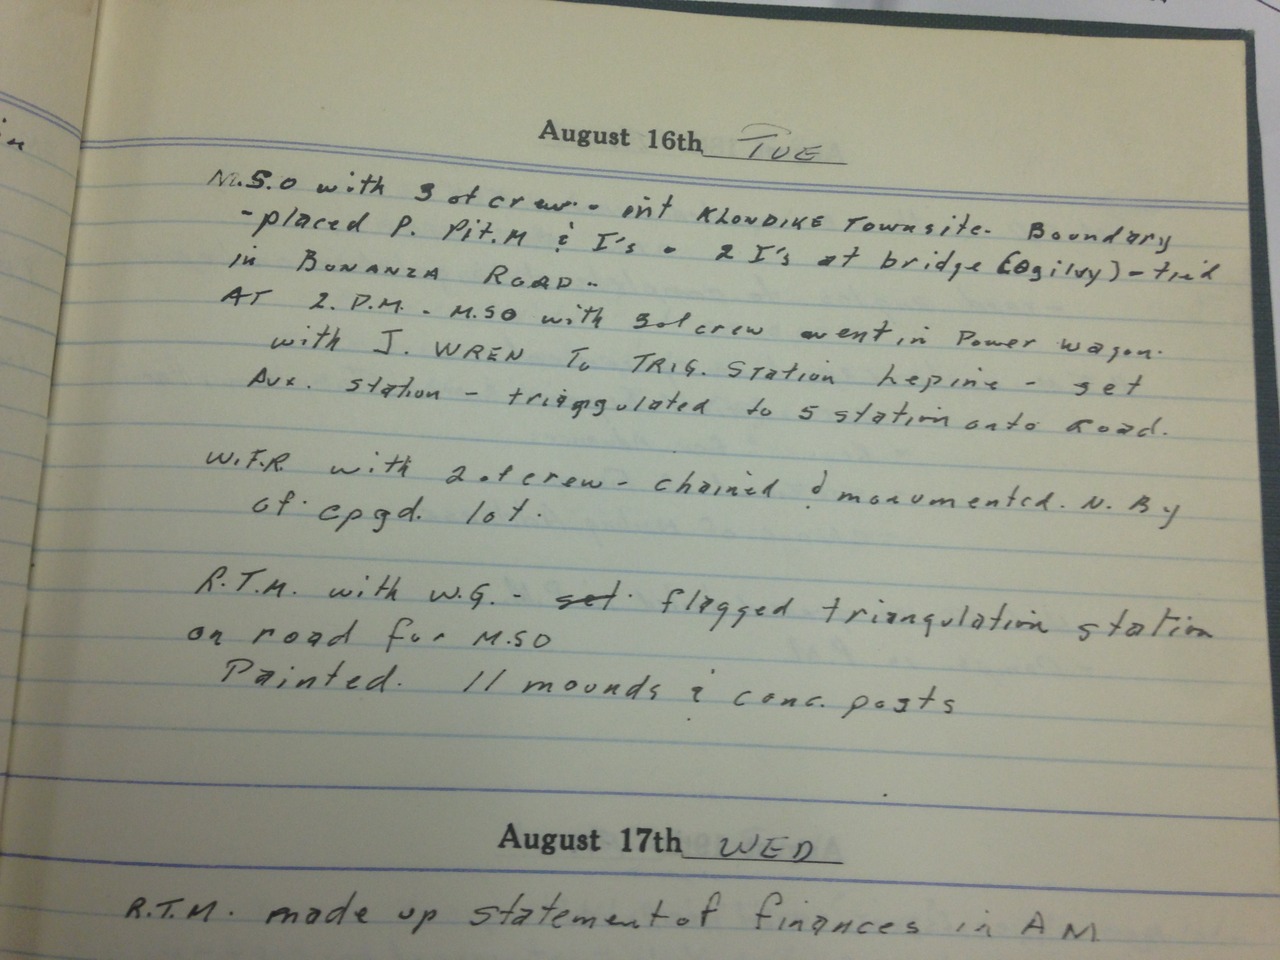 in
August 16th TUE
M.S.O with 3 of crew - int KLONDIKE Townsite. Boundary
- placed P. Pit. M & I's - 2 I's at bridge (Ogilvy) - tied
in BONANZA ROAD -
AT 2. P.M. - M.SO with 3 of crew went in Power wagon.
with J. WREN To TRIG. STATION Lepine - set
Aux. station - triangulated to 5 station onto road.
W.F.R with 2 of crew - chained & monumented. N. By
of cpgd. lot.
R.T.M. with W.G. - set flagged triangulation station
on road for M.SO
Painted. 11 mounds & conc. posts
August 17th WED
R.T.M. made up statement of finances in AM